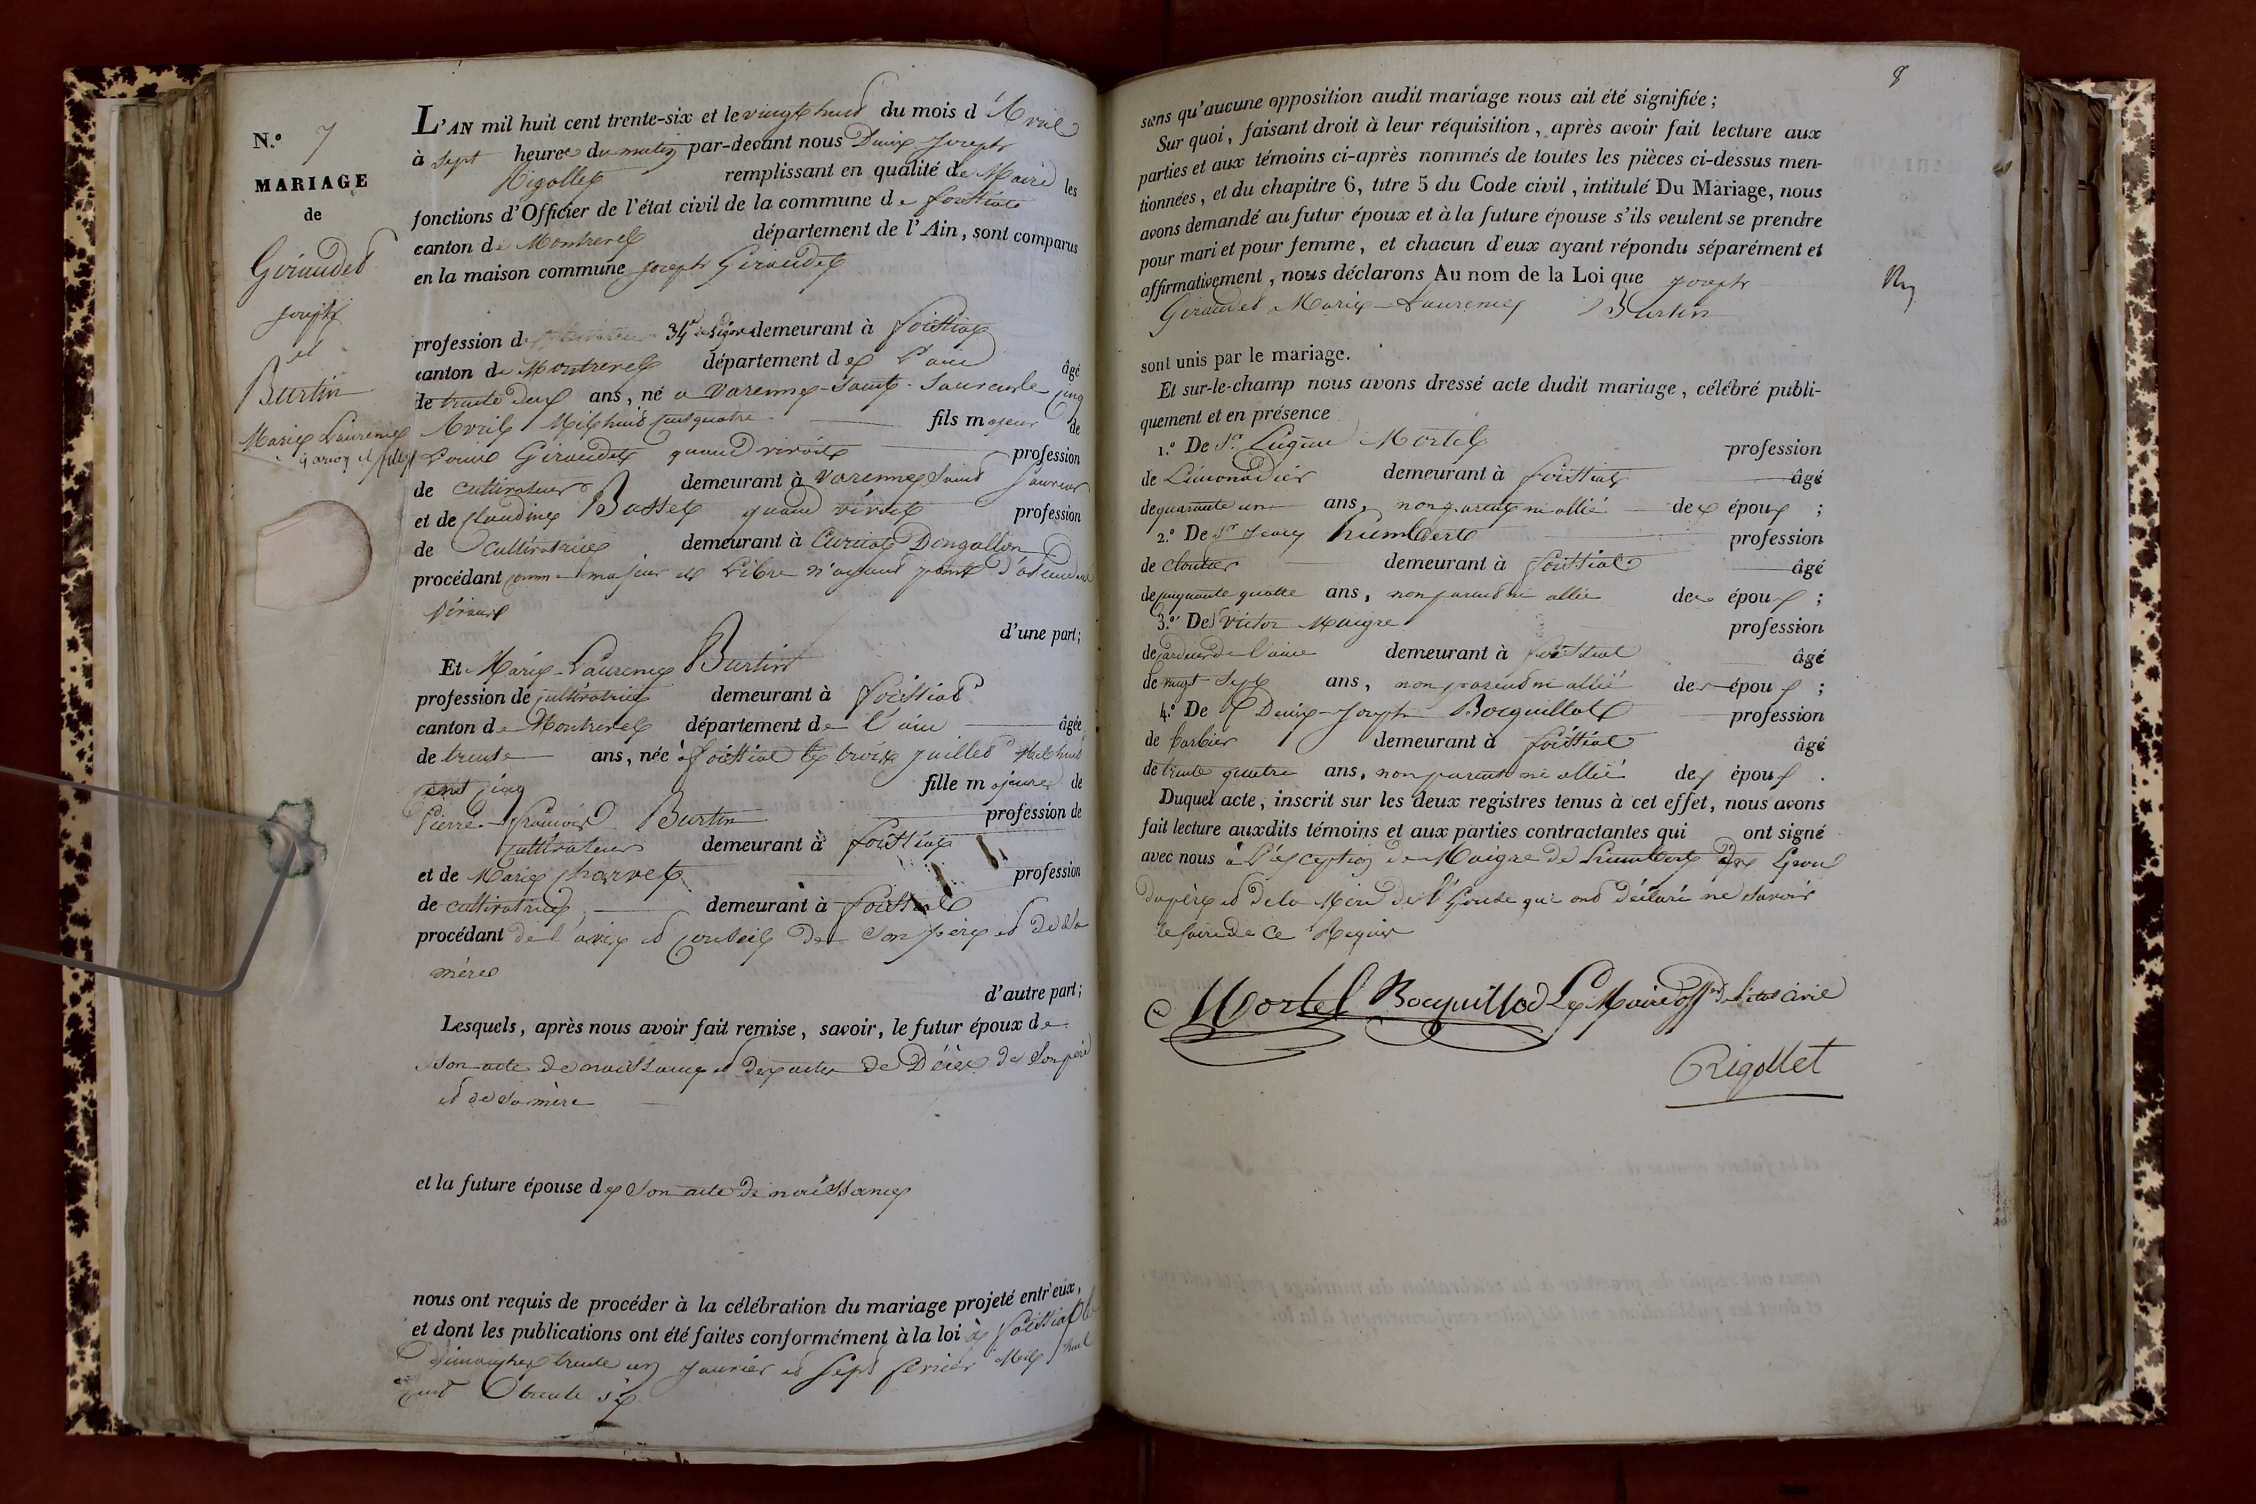 N.º 7
MARIAGE
de
Giraudet
Joseph
et
Burtin
Marie Laurence
garçon et fille
L'AN mil huit cent trente-six et le vingt huit du mois d'Avril
à sept heures du matin par-devant nous Denis Joseph
Rigollet remplissant en qualité de Maire les
fonctions d'Officier de l'état civil de la commune de foissiat
canton de Montrevel département de l'Ain, sont comparus
en la maison commune Joseph Giraudet
profession de 34e de Ligne demeurant à foissiat
canton de Montrevel département de L'ain âgé
de trente deux ans, né a Varenne-Saint-Sauveur le cinq
Avril Mil huit cent quatre fils majeur de
Louis Giraudet quand vivoit profession
de cultivateur demeurant à Varenne Saint Sauveur
et de Claudine Basset quand vivoit profession
de Cultivatrice demeurant à Curciat Dongallon
procédant comme majeur et Libre n'ayant point d'asendant
d'une part;
Et Marie Laurence Burtin
profession de cultivatrice demeurant à foissiat
canton de Montrevel département de l'ain âgée
de trente ans, née à foissiat le trois juillet Mil huit
cent cinq fille majeure de
Pierre François Burtin profession de
cultivateur demeurant à foissiat
et de Marie Charvet profession
de cultivatrice demeurant à foissiat
procédant de l'avis et conseil de son père et de sa
mère
d'autre part;
Lesquels, après nous avoir fait remise, savoir, le futur époux de
son acte de naissance et des actes de Décès de son père
et de sa mère
et la future épouse de son acte de naissance
nous ont requis de procéder à la célébration du mariage projeté entr'eux,
et dont les publications ont été faites conformément à la loi à foissiat le
dimanche trente un janvier et sept fevrier Mil huit
cent trente six
8
sans qu'aucune opposition audit mariage nous ait été signifiée;
Sur quoi, faisant droit à leur réquisition, après avoir fait lecture aux
parties et aux témoins ci-après nommés de toutes les pièces ci-dessus men-
tionnées, et du chapitre 6, titre 5 du Code civil, intitulé Du Mariage, nous
avons demandé au futur époux et à la future épouse s'ils veulent se prendre
pour mari et pour femme, et chacun d'eux ayant répondu séparément et
affirmativement, nous déclarons Au nom de la Loi que Joseph
Giraudet Marie-Laurence Burtin
sont unis par le mariage.
Et sur-le-champ nous avons dressé acte dudit mariage, célébré publi-
quement et en présence
1.º De Sr. Eugène Mortel profession
de Limonadier demeurant à foissiat âgé
de quarante un ans, non parent ni allié des époux ;
2.º De Sr humbert profession
de cloutier demeurant à foissiat âgé
de cinquante quatre ans, non parent ni allié des époux ;
3.º De Victor Maigre profession
de demeurant à foissiat âgé
de vingt Sept ans, non parent ni allié des époux ;
4.º De Denis-Joseph Bocquillot profession
de barbier demeurant à foissiat âgé
de trente quatre ans, non parent ni allié des époux .
Duquel acte, inscrit sur les deux registres tenus à cet effet, nous avons
fait lecture auxdits témoins et aux parties contractantes qui ont signé
avec nous à L'exception de Maigre de humbert des Epoux
du père et de la Mère de l'Epouse qui ont déclaré ne savoir
le faire de ce Requis
Mortel Bocquillod Le Maire offer de l'état civil
Rigollet